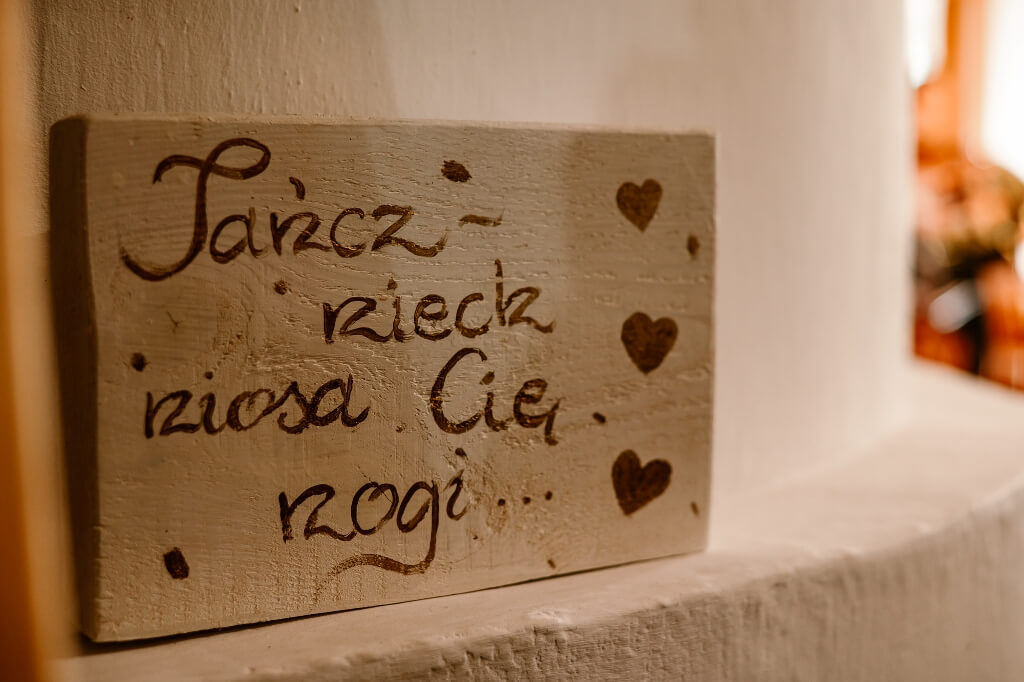 Tańcz -
niech
niosa Cię
nogi...